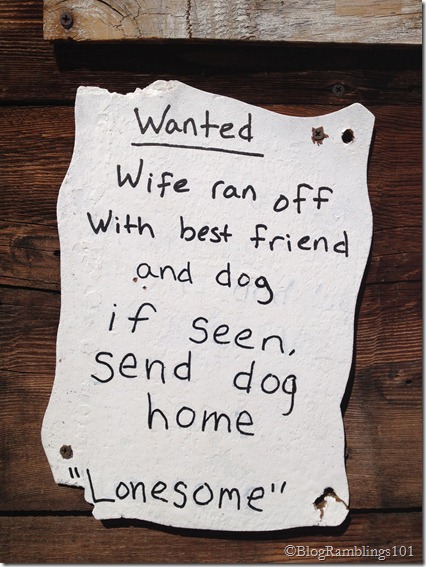 Wanted
Wife ran off
With best friend
and dog
if seen,
send dog
home
"Lonesome"
©BlogRamblings101